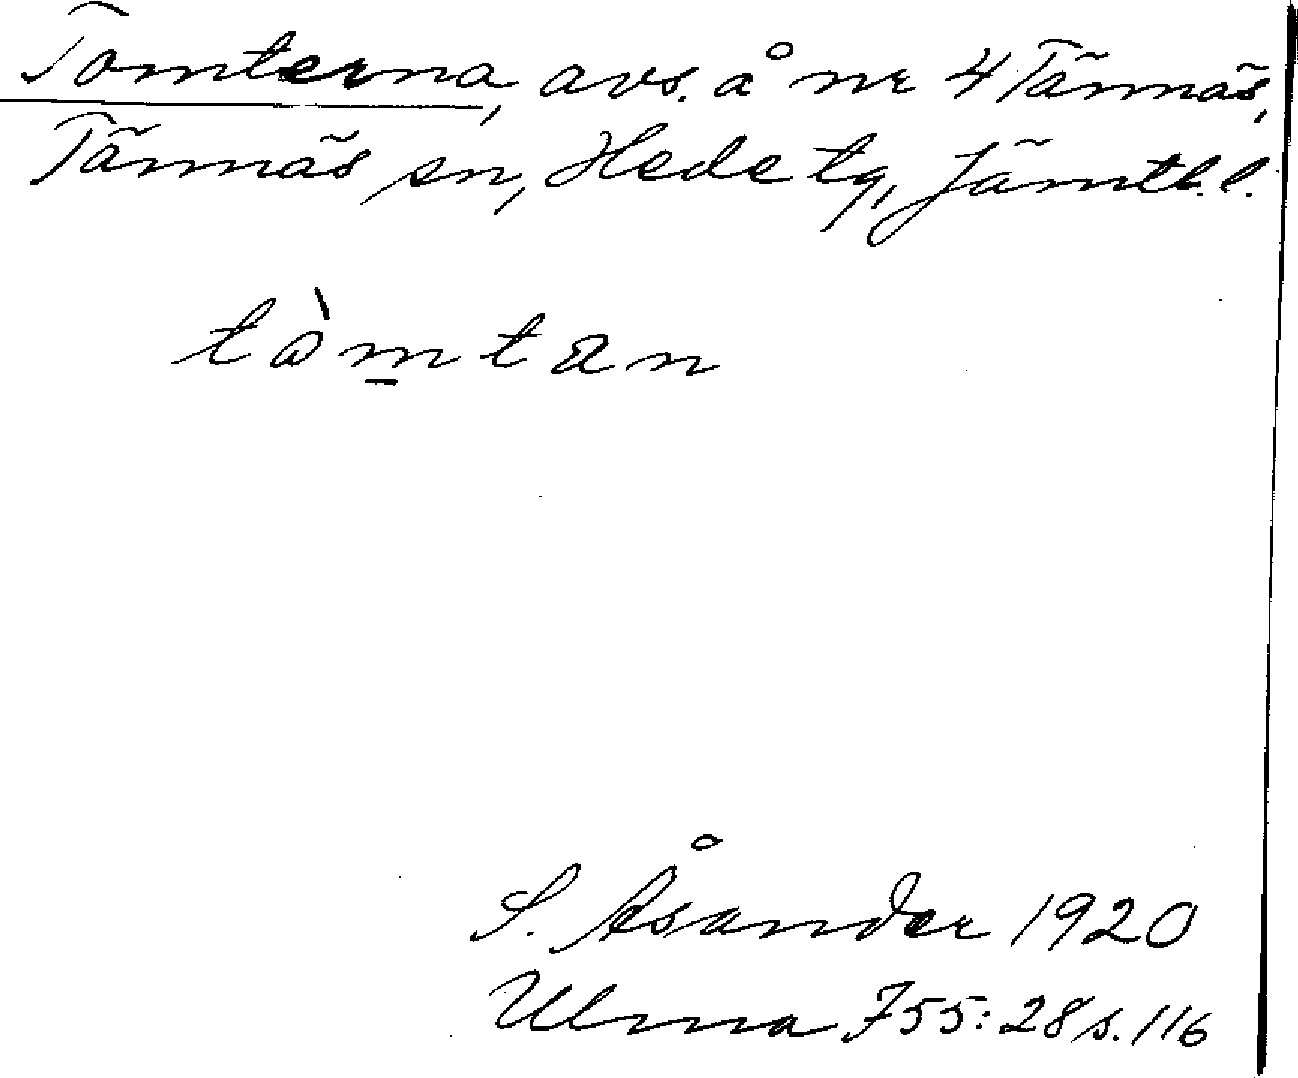 Tomterna, avs. å nr 4 Tännäs,
Tännäs sn, Hede tg, Jämtl. l.
tòm̱tan
S. Åsander 1920
Ulma 755:28 s. 116